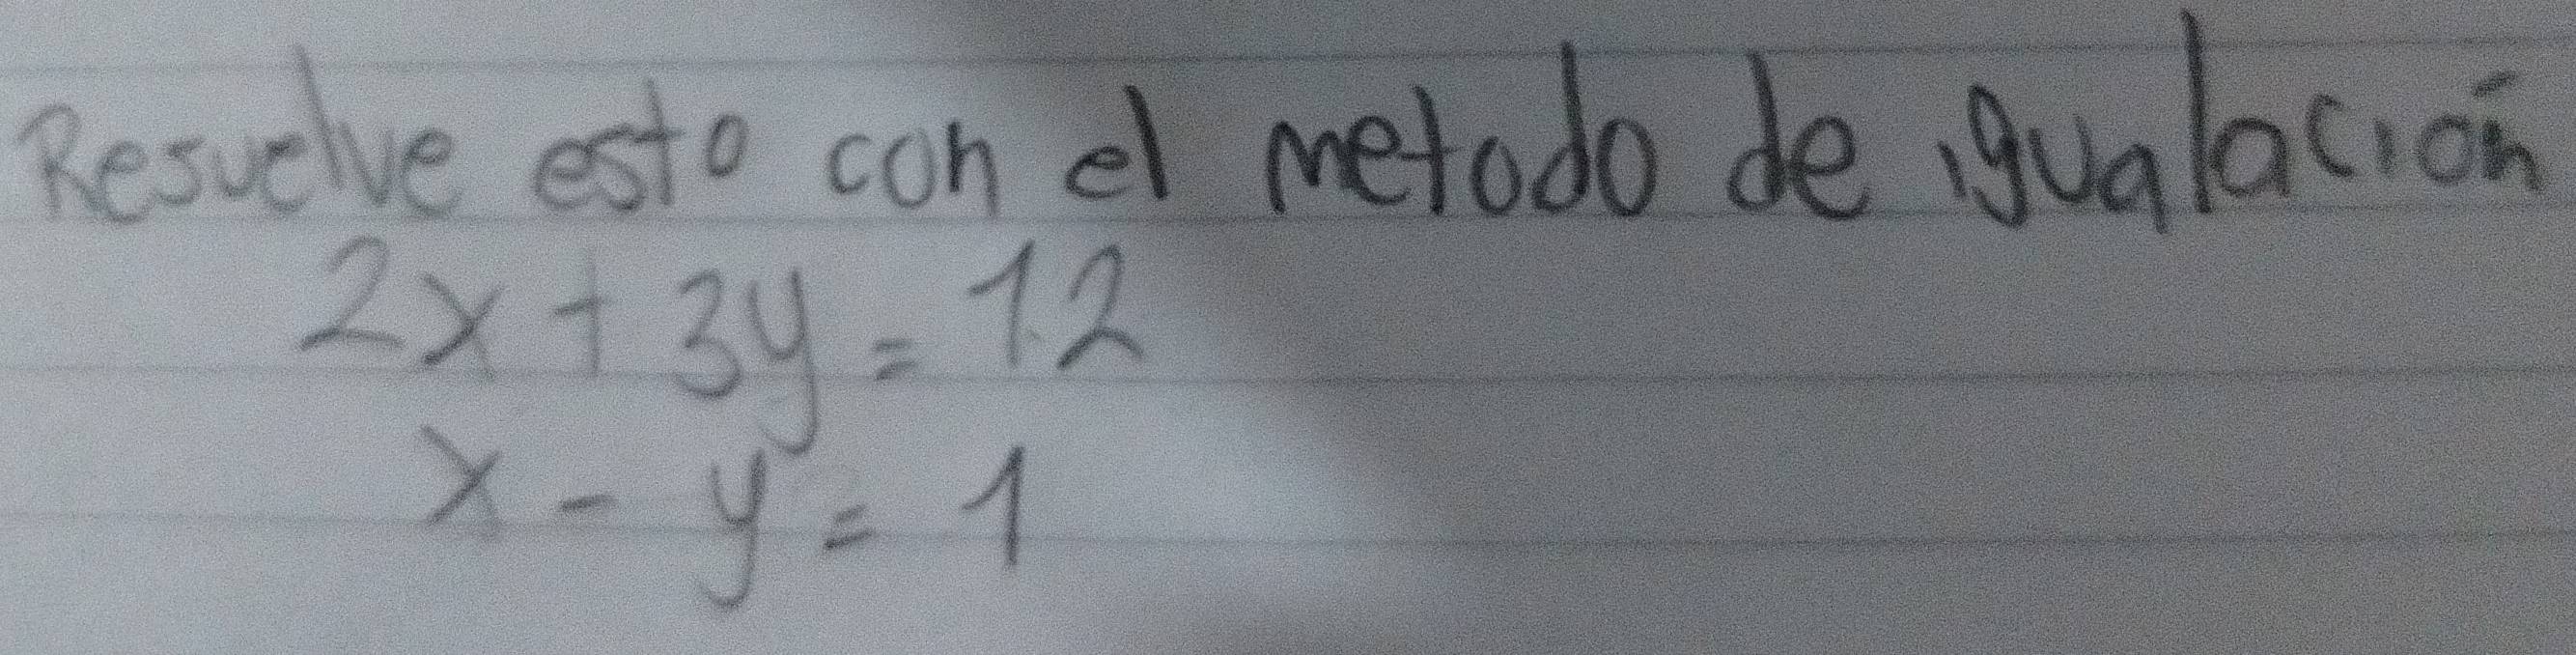 Resuelve esto con el metodo de igualación
2x + 3y = 12
x - y = 1